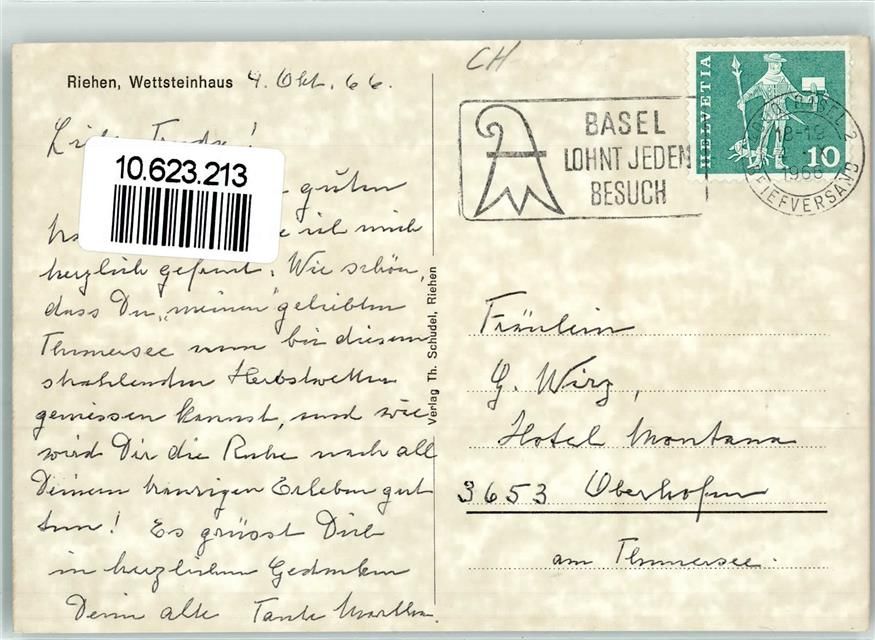 Riehen, Wettsteinhaus 4. Okt. 66.
CH
HELVETIA
10
BASEL
LOHNT JEDEN
BESUCH
BASEL 2
18-19
1966
BRIEFVERSAND
10.623.213
guten
ich mich
herzlich gefreut. Wie schön,
dass Du "meinen" geliebten
Thunersee nun bei diesem
strahlenden Herbstwetter
geniessen kannst, und wie
wird Dir die Ruhe nach all
Deinem traurigen Erleben gut
tun! Es grüsst Dich
in herzlichem Gedenken
Deine alte Tante Martha.
Verlag Th. Schudel, Riehen
Fräulein
G. Wirz,
Hotel Montana
3653 Oberhofen
am Thunersee.